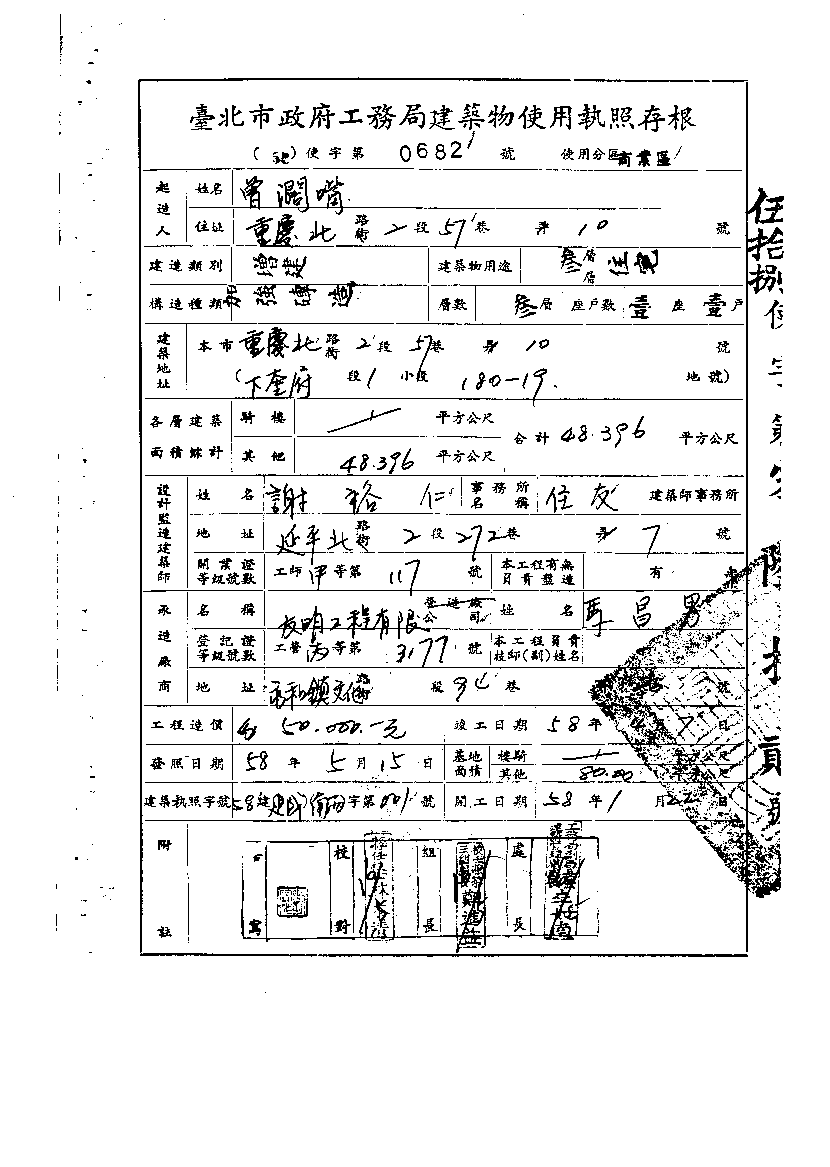 臺北市政府工務局建築物使用執照存根
( ) 使字第 0682 號 使用分區 商業區
起造人 姓名 曾濶嘴
住址 重慶北 路街 2 段 57 巷 弄 10 號
建造類別 增建 建築物用途 叁層層住宅
構造種類 加強磚造 層數 叁層 座戶數 壹座壹戶
建築地址 本市 重慶北 路街 2 段 57 巷 弄 10 號
(下奎府 段 1 小段 180-19. 地號)
各層建築面積綜計 騎樓 / 平方公尺 合計 48.396 平方公尺
其他 48.396 平方公尺
設計監造建築師 姓名 謝裕仁 事務所名稱 住友 建築師事務所
地址 延平北 路街 2 段 272 巷 弄 7 號
開業證等級號數 工師甲等第 117 號 本工程有無負責監造 有
承造廠商 名稱 友明工程有限公司 營造廠 姓名 昌男
登記證等級號數 工營丙等第 3177 號 本工程負責技師(副)姓名
地址 永和鎮文化 段 34 巷 號
工程造價 50.000.-元 竣工日期 58 年 月 7 日
發照日期 58 年 5 月 15 日 基地面積 樓騎 / 平方公尺
其他 80.00 平方公尺
建築執照字號 58 建 字第 001 號 開工日期 58 年 1 月 22 日
附註 校對 組長 處長
伍拾捌使字第 陸 貳號